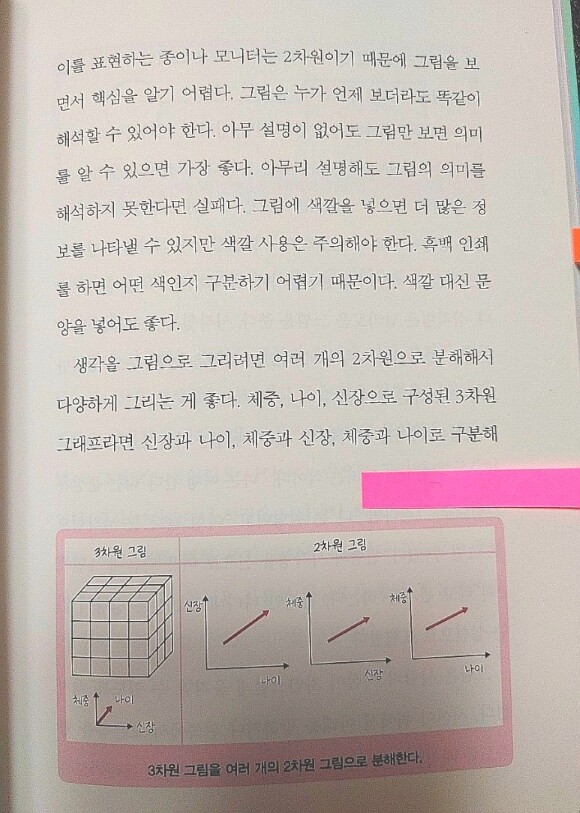 이를 표현하는 종이나 모니터는 2차원이기 때문에 그림을 보
면서 핵심을 알기 어렵다. 그림은 누가 언제 보더라도 똑같이
해석할 수 있어야 한다. 아무 설명이 없어도 그림만 보면 의미
를 알 수 있으면 가장 좋다. 아무리 설명해도 그림의 의미를
해석하지 못한다면 실패다. 그림에 색깔을 넣으면 더 많은 정
보를 나타낼 수 있지만 색깔 사용은 주의해야 한다. 흑백 인쇄
를 하면 어떤 색인지 구분하기 어렵기 때문이다. 색깔 대신 문
양을 넣어도 좋다.
생각을 그림으로 그리려면 여러 개의 2차원으로 분해해서
다양하게 그리는 게 좋다. 체중, 나이, 신장으로 구성된 3차원
그래프라면 신장과 나이, 체중과 신장, 체중과 나이로 구분해
3차원 그림
2차원 그림
체중
나이
신장
신장
나이
체중
신장
체중
나이
3차원 그림을 여러 개의 2차원 그림으로 분해한다.